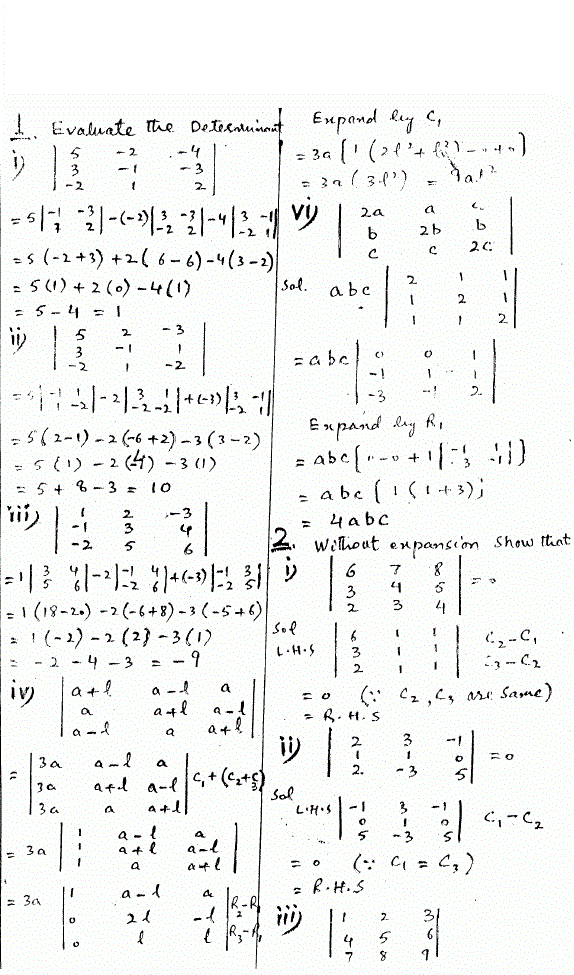 1. Evaluate the Determinant
i) | 5 -2 -4 |
| 3 -1 -3 |
| -2 1 2 |
= 5 | -1 -3 | -(-2) | 3 -3 | -4 | 3 -1 |
| 1 2 | | -2 2 | | -2 1 |
= 5 (-2+3) + 2( 6-6) - 4(3-2)
= 5 (1) + 2 (0) - 4(1)
= 5 - 4 = 1
ii) | 5 2 -3 |
| 3 -1 1 |
| -2 1 -2 |
= 5 | -1 1 | -2 | 3 1 | +(-3) | 3 -1 |
| 1 -2 | | -2 -2 | | -2 1 |
= 5 (2-1) - 2 (-6+2) - 3 (3-2)
= 5 (1) - 2 (-4) - 3 (1)
= 5 + 8 - 3 = 10
iii) | 1 2 -3 |
| -1 3 4 |
| -2 5 6 |
= 1 | 3 4 | -2 | -1 4 | +(-3) | -1 3 |
| 5 6 | | -2 6 | | -2 5 |
= 1 (18-20) - 2 (-6+8) - 3 (-5+6)
= 1 (-2) - 2 (2) - 3 (1)
= -2 - 4 - 3 = -9
iv) | a+l a-l a |
| a a+l a-l |
| a-l a a+l |
= | 3a a-l a |
| 3a a+l a-l | C₁+(C₂+C₃)
| 3a a a+l |
= 3a | 1 a-l a |
| 1 a+l a-l |
| 1 a a+l |
= 3a | 1 a-l a |
| 0 2l -l | R₂-R₁
| 0 l l | R₃-R₁
Expand by C₁
= 3a { 1 (2l²+l²) - 0+0 }
= 3a (3l²) = 9al²
vi) | 2a a c |
| b 2b b |
| c c 2c |
Sol. abc | 2 1 1 |
| 1 2 1 |
| 1 1 2 |
= abc | 0 0 1 |
| -1 1 1 |
| -3 -1 2 |
Expand by R₁
= abc { 0-0+1 | -1 1 | }
| -3 -1 |
= abc { 1 (1+3) }
= 4abc
2. Without expansion show that
i) | 6 7 8 |
| 3 4 5 | = 0
| 2 3 4 |
Sol
L.H.S | 6 1 1 | C₂-C₁
| 3 1 1 | C₃-C₂
| 2 1 1 |
= 0 (∵ C₂, C₃ are same)
= R.H.S
ii) | 2 3 -1 |
| 1 1 0 | = 0
| 2 -3 5 |
Sol
L.H.S | -1 3 -1 |
| 0 1 0 | C₁-C₂
| 5 -3 5 |
= 0 (∵ C₁ = C₃)
= R.H.S
iii) | 1 2 3 |
| 4 5 6 |
| 7 8 9 |